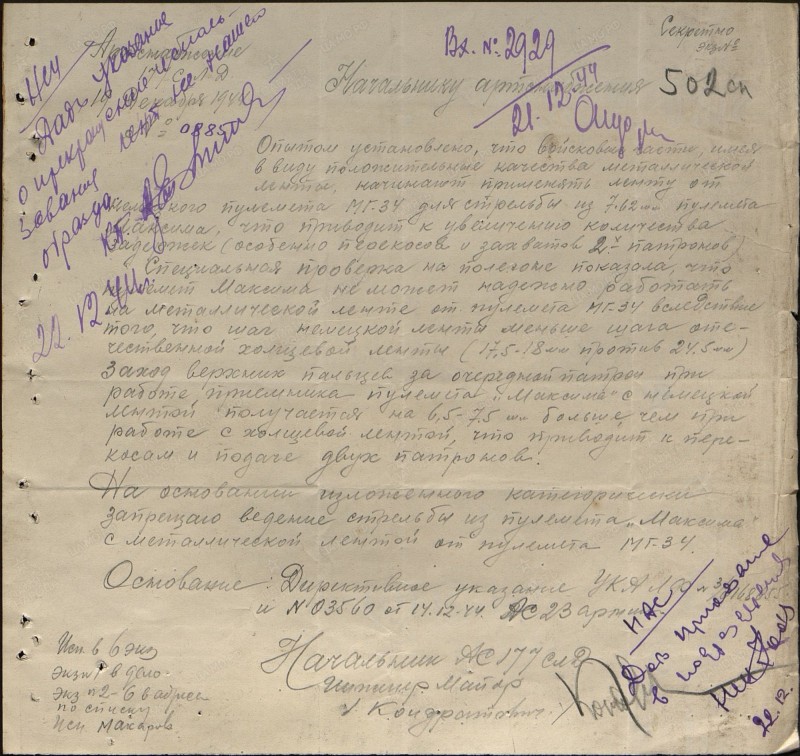 Секретно
экз №
Вх. № 2929
21.12.44
Начальнику артснабжения 502 сп
19 декабря 194
№ 0885
Нач
Дать указание
о прекращении исполь-
зования лент не нашего
образца
22.12.44
Опытом установлено, что войсковые части, имея
в виду положительные качества металлической
ленты, начинают применять ленту от
немецкого пулемета МГ-34 для стрельбы из 7,62мм пулемета
Максима, что приводит к увеличению количества
задержек (особенно перекосов и захватов 2х патронов)
Специальная проверка на полигоне показала, что
пулемет Максима не может надежно работать
на металлической ленте от пулемета МГ-34 вследствие
того, что шаг немецкой ленты меньше шага оте-
чественной холщевой ленты (17,5-18мм против 24.5мм)
Заход верхних пальцев за очередной патрон при
работе приемника пулемета „Максима" с немецкой
лентой получается на 6,5-7,5 мм больше чем при
работе с холщевой лентой, что приводит к пере-
косам и подаче двух патронов.
На основании изложенного категорически
запрещаю ведение стрельбы из пулемета „Максима"
с металлической лентой от пулемета МГ-34.
Основание: Директивное указание УКА
и №03560 от 14.12.44 АС 23 армии
Начальник АС 177 сд
Инженер Майор
/Кондратович/
Исп. в 6 экз
экз №1 в дело
экз №2-6 в адреса
по списку
Исп. Макаров
НАС
Дав приказание
в подразделения
22.12.